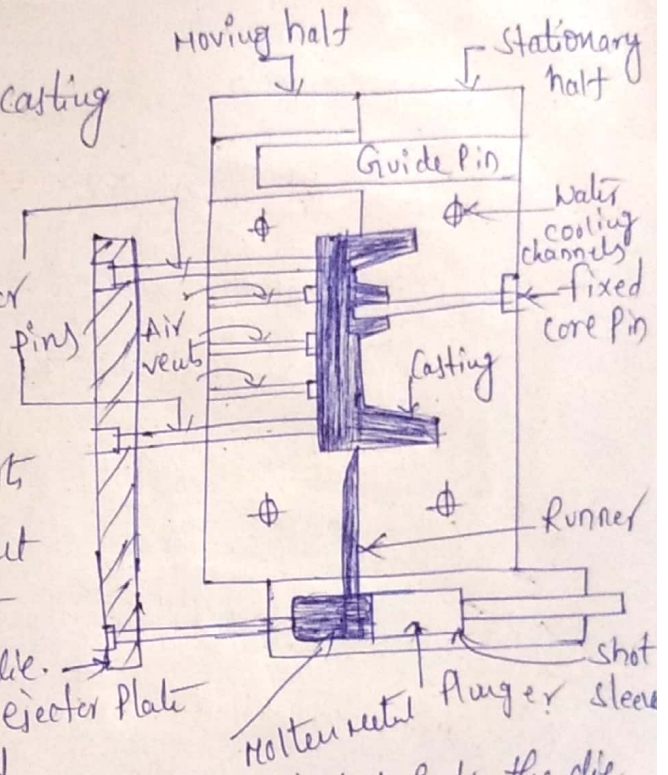 Moving half
Stationary
half
casting
Guide Pin
Water
cooling
channels
fixed
core Pin
pins
Air
vents
Casting
Runner
die.
ejector Plate
Molten metal
Plunger
Shot
Sleeve
the die